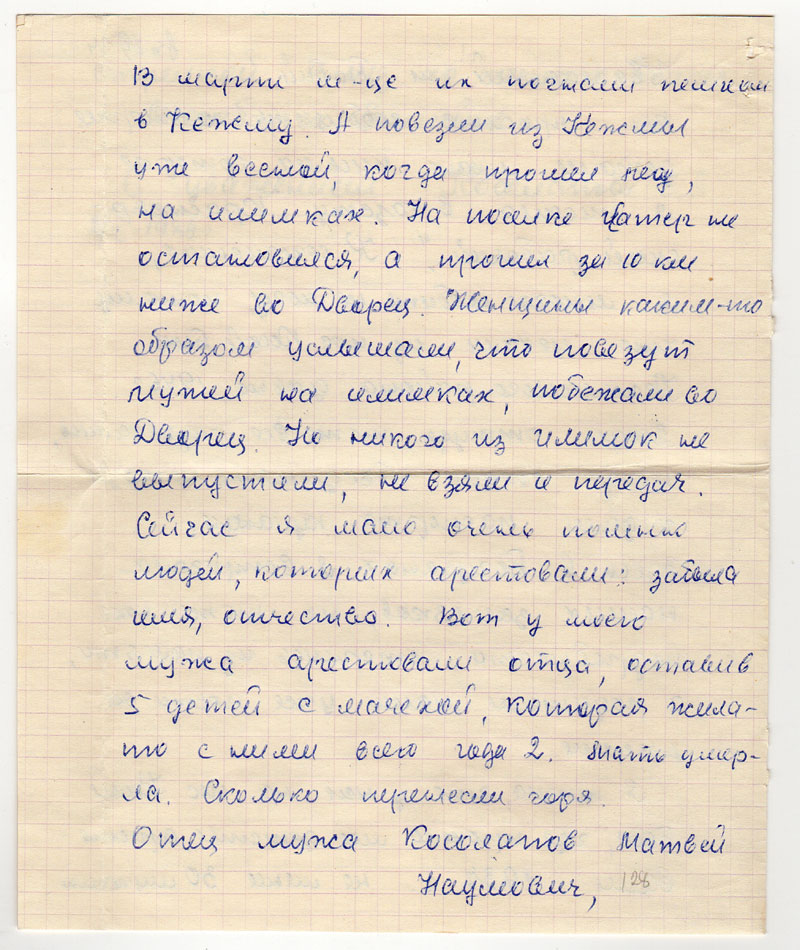 В марте м-це их погнали пешком
в Кежму. А повезли из Кежмы
уже весной, когда прошел лед,
на илимках. На поселке катер не
остановился, а прошел за 10 км
ниже во Дворец. Женщины каким-то
образом услышали, что повезут
мужей на илимках, побежали во
Дворец. Но никого из илимок не
выпустили, не взяли и передач.
Сейчас я мало очень помню
людей, которых арестовали: забыла
имя, отчество. Вот у моего
мужа арестовали отца, оставив
5 детей с мачехой, которая жила-
то с ними всего года 2. Мать умер-
ла. Сколько перенесли горя.
Отец мужа Косолапов Матвей
Наумович, 128